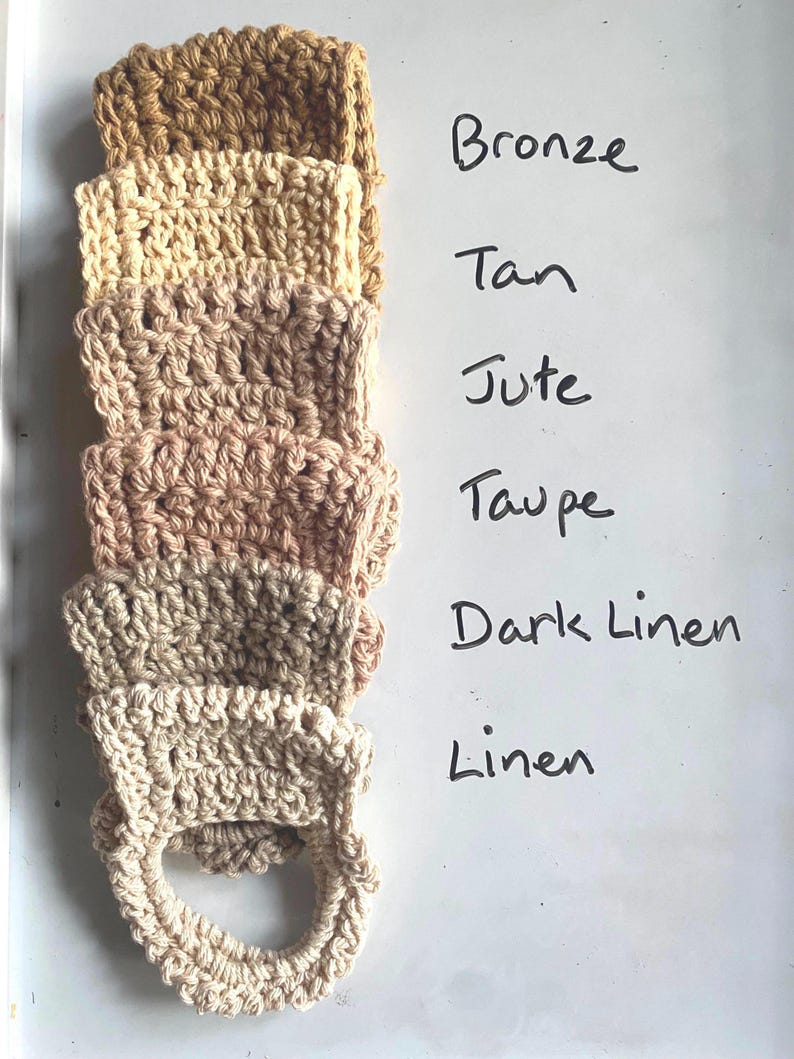 Bronze
Tan
Jute
Taupe
Dark Linen
Linen